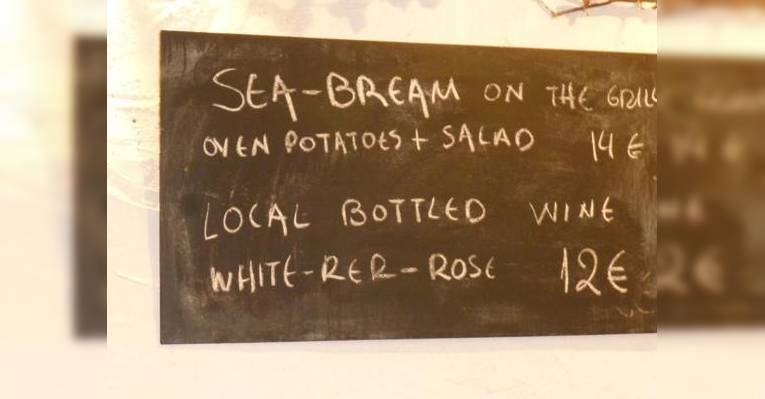 SEA-BREAM ON THE GRILL
OVEN POTATOES + SALAD 14 €
LOCAL BOTTLED WINE
WHITE-RER-ROSE 12€